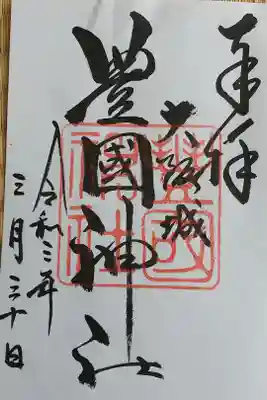 奉拝
大阪城
豊國神社
令和三年
三月三十日
豐國
神社